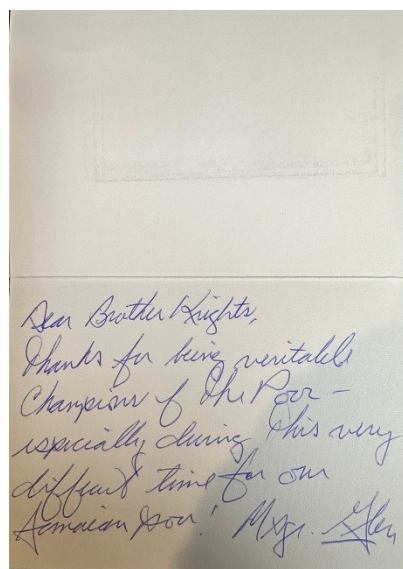 Dear Brother Knights,
Thanks for being veritable
Champions of the Poor -
especially during this very
difficult time for our
Jamaican poor! Msgr. Glen